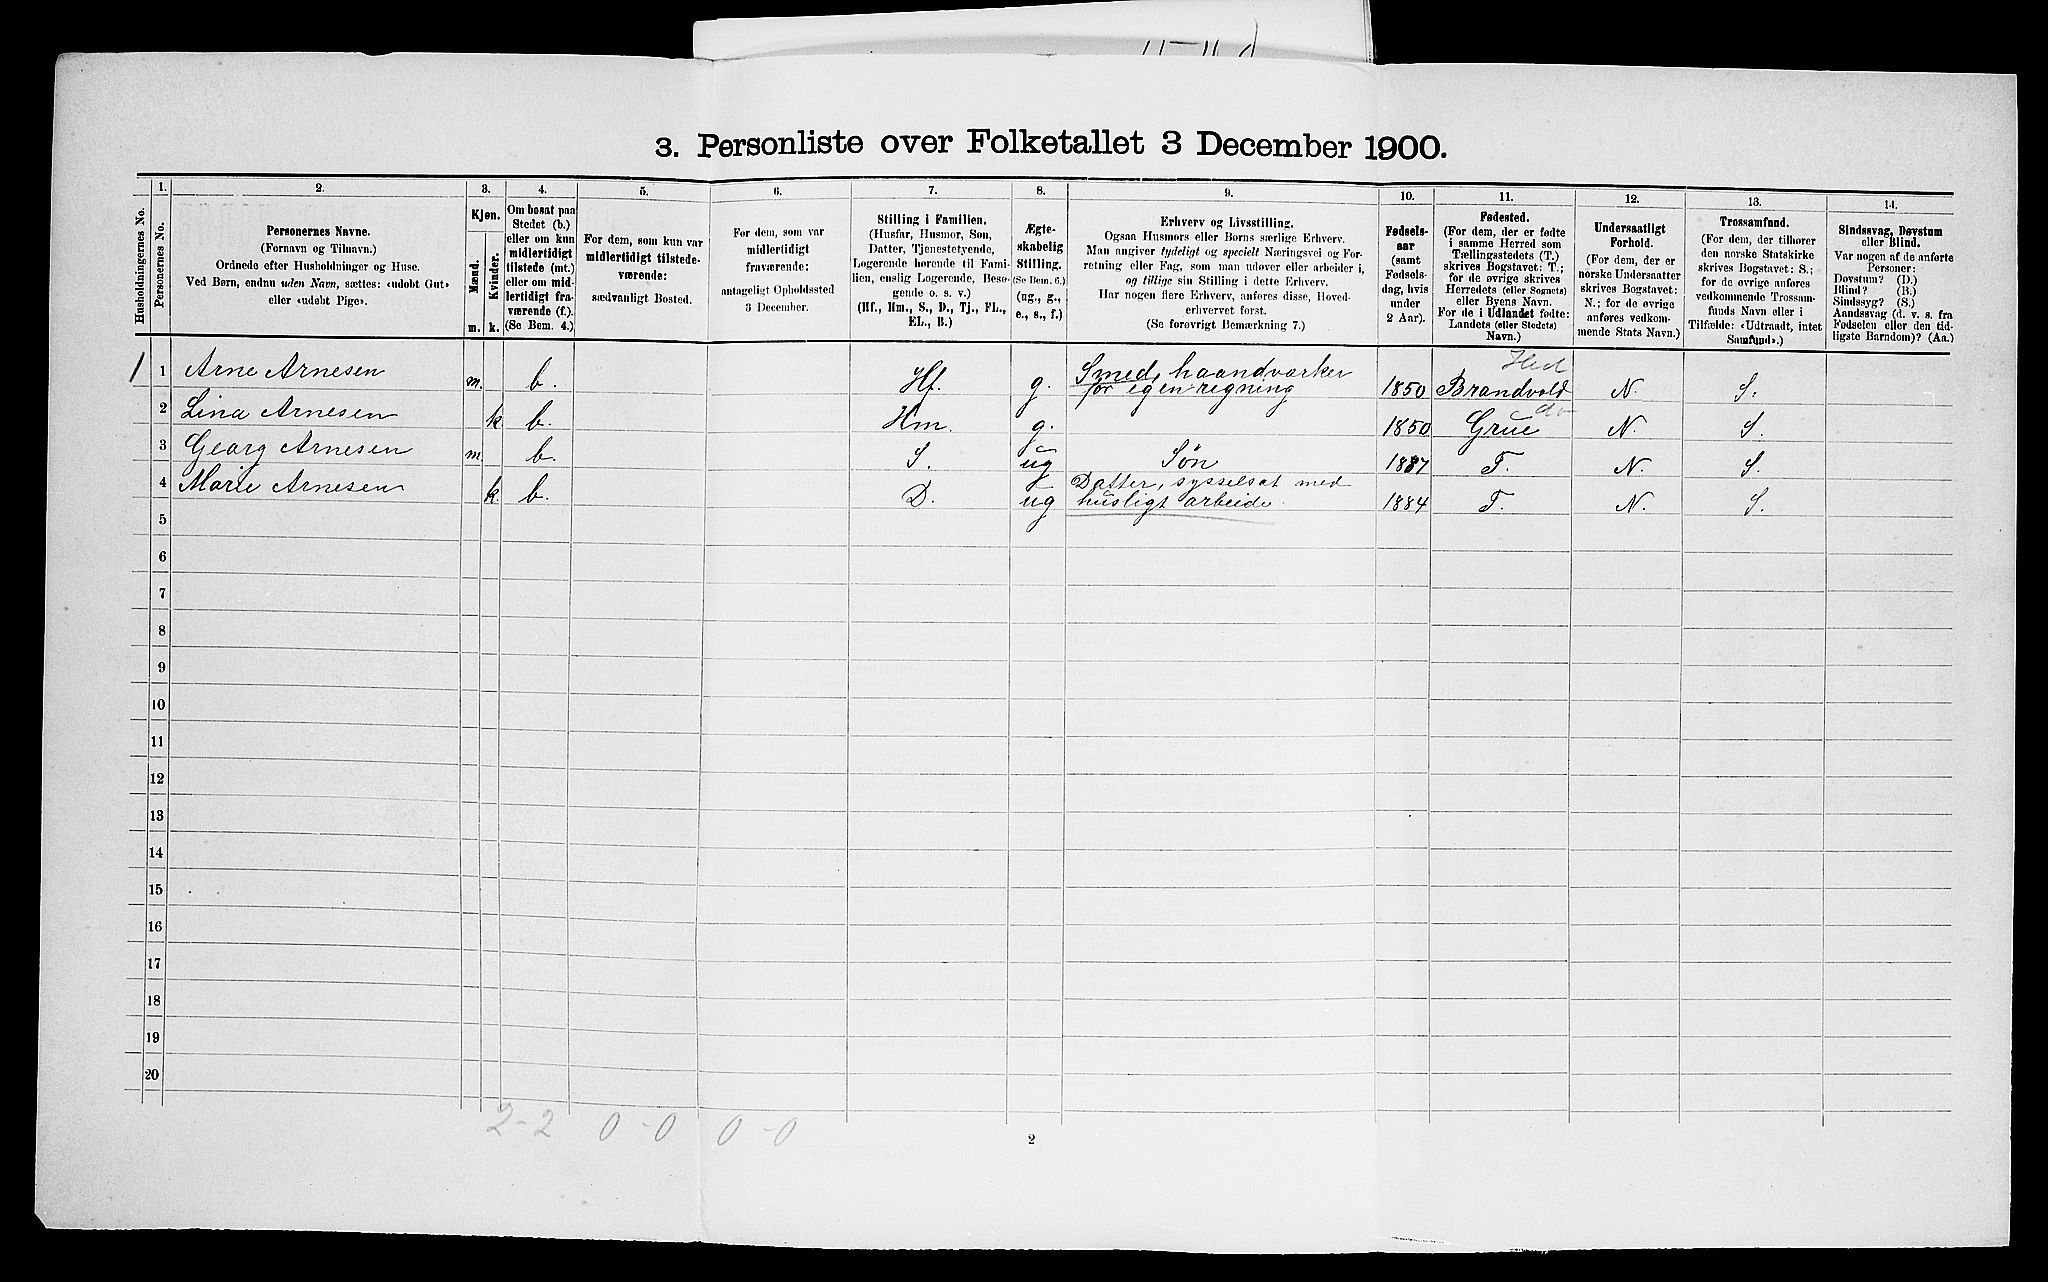 3. Personliste over Folketallet 3 December 1900.
Husholdningernes No.
1.
Personernes No.
2.
Personernes Navne.
(Fornavn og Tilnavn.)
Ordnede efter Husholdninger og Huse.
Ved Børn, endnu uden Navn, sættes: «udøbt Gut»
eller «udøbt Pige».
3.
Kjøn.
Mænd.
Kvinder.
m. k.
4.
Om bosat paa
Stedet (b.)
eller om kun
midlertidigt
tilstede (mt.)
eller om mid-
lertidigt fra-
værende (f.).
(Se Bem. 4.)
5.
For dem, som kun var
midlertidigt tilstede-
værende:
sædvanligt Bosted.
6.
For dem, som var
midlertidigt
fraværende:
antageligt Opholdssted
3 December.
7.
Stilling i Familien.
(Husfar, Husmor, Søn,
Datter, Tjenestetyende,
Logerende hørende til Fami-
lien, enslig Logerende, Besø-
gende o. s. v.)
(Hf., Hm., S., D., Tj., FL.,
EL., B.)
8.
Ægte-
skabelig
Stilling.
(Se Bem. 6.)
(ug., g.,
e., s., f.)
9.
Erhverv og Livsstilling.
Ogsaa Husmors eller Børns særlige Erhverv.
Man angiver tydeligt og specielt Næringsvei og For-
retning eller Fag, som man udøver eller arbeider i,
og tillige sin Stilling i dette Erhverv.
Har nogen flere Erhverv, anføres disse, Hoved-
erhvervet først.
(Se forøvrigt Bemærkning 7.)
10.
Fødsels-
aar
(samt
Fødsels-
dag, hvis
under
2 Aar).
11.
Fødested.
(For dem, der er fødte
i samme Herred som
Tællingsstedets (T.)
skrives Bogstavet: T.;
for de øvrige skrives
Herredets (eller Sognets)
eller Byens Navn.
For de i Udlandet fødte:
Landets (eller Stedets)
Navn.)
12.
Undersaatligt
Forhold.
(For dem, der er
norske Undersaatter
skrives Bogstavet:
N.; for de øvrige
anføres vedkom-
mende Stats Navn.)
13.
Trossamfund.
(For dem, der tilhører
den norske Statskirke
skrives Bogstavet: S.;
for de øvrige anføres
vedkommende Trossam-
funds Navn eller i
Tilfælde: «Udtraadt, intet
Samfund».)
14.
Sindssvag, Døvstum
eller Blind.
Var nogen af de anførte
Personer:
Døvstum? (D.)
Blind? (B.)
Sindssyg? (S.)
Aandssvag (d. v. s. fra
Fødselen eller den tid-
ligste Barndom)? (Aa.)
Hed
1 1 Arne Arnesen m. b. Hf. g. Smed, haandværker
for egen regning 1850 Brandvold N. S.
do
2 Lina Arnesen k. b. Hm. g. 1850 Grue N. S.
3 Georg Arnesen m. b. S. ug Søn 1887 T. N. S.
4 Marie Arnesen k. b. D. ug Datter, sysselsat med
husligt arbeide. 1884 T. N. S.
5
6
7
8
9
10
11
12
13
14
15
16
17
18
19
20
2-2 0-0 0-0
2